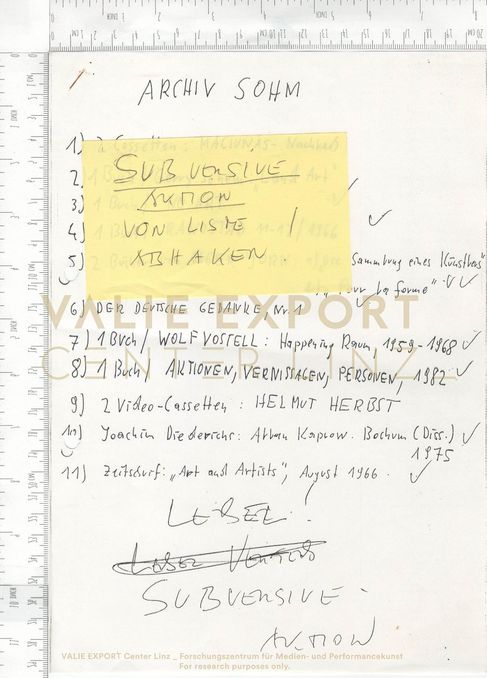 ARCHIV SOHM
1) 2 Cassetten: MACIUNAS-Nachlaß
2)
SUBVERSIVE
3)
AKTION
4) VON LISTE / 1966
5) ABHAKEN
Sammlung eines Künstlers"
"Pour la forme"
6) DER DEUTSCHE GEDANKE, Nr. 1
VALIE EXPORT
CENTER LINZ_
7) 1 Buch / WOLF VOSTELL: Happening Raum 1959-1968
8) 1 Buch / AKTIONEN, VERNISSAGEN, PERSONEN, 1982
9) 2 Video-Cassetten: HELMUT HERBST
10) Joachim Diederichs: Allan Kaprow. Bochum (Diss.)
1975
11) Zeitschrif: "Art and Artists", August 1966
LEBEL!
SUBVERSIVE -
AKTION
VALIE EXPORT Center Linz _ Forschungszentrum für Medien- und Performancekunst
For research purposes only.